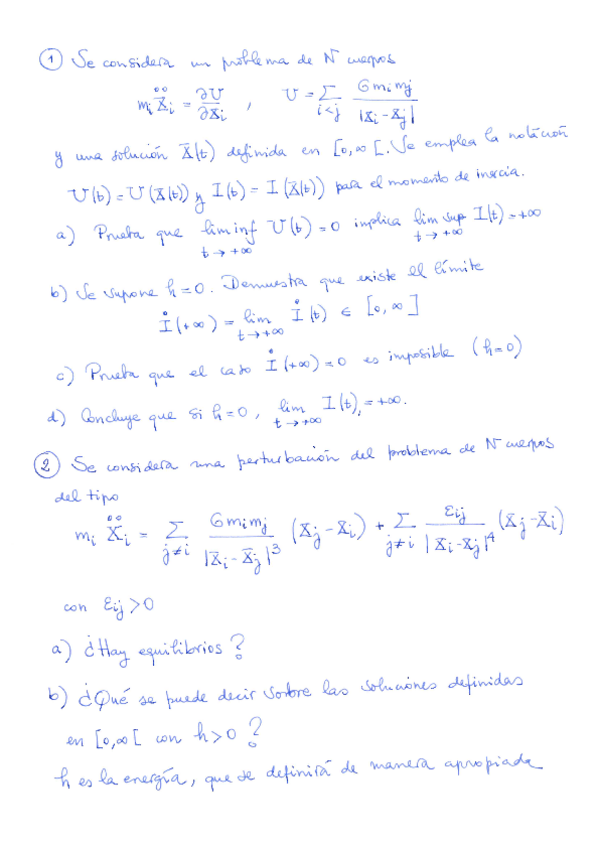 ① Se considera un problema de N cuerpos
mᵢ Ẍᵢ = ∂U/∂Xᵢ , U = Σ_{i<j} G mᵢ mⱼ / |Xᵢ - Xⱼ|
y una solución X(t) definida en [0,∞[. Se emplea la notación
U(t) = U(X(t)) y I(t) = I(X(t)) para el momento de inercia.
a) Prueba que lim inf_{t→+∞} U(t) = 0 implica lim sup_{t→+∞} I(t) = +∞
b) Se supone h = 0. Demuestra que existe el límite
İ(+∞) = lim_{t→+∞} İ(t) ∈ [0,∞]
c) Prueba que el caso İ(+∞) = 0 es imposible (h=0)
d) Concluye que si h=0, lim_{t→+∞} I(t) = +∞.
② Se considera una perturbación del problema de N cuerpos
del tipo
mᵢ Ẍᵢ = Σ_{j≠i} G mᵢ mⱼ / |Xᵢ - Xⱼ|³ (Xⱼ - Xᵢ) + Σ_{j≠i} εᵢⱼ / |Xᵢ - Xⱼ|⁴ (Xⱼ - Xᵢ)
con εᵢⱼ > 0
a) ¿Hay equilibrios?
b) ¿Qué se puede decir sobre las soluciones definidas
en [0,∞[ con h > 0?
h es la energía, que se definirá de manera apropiada